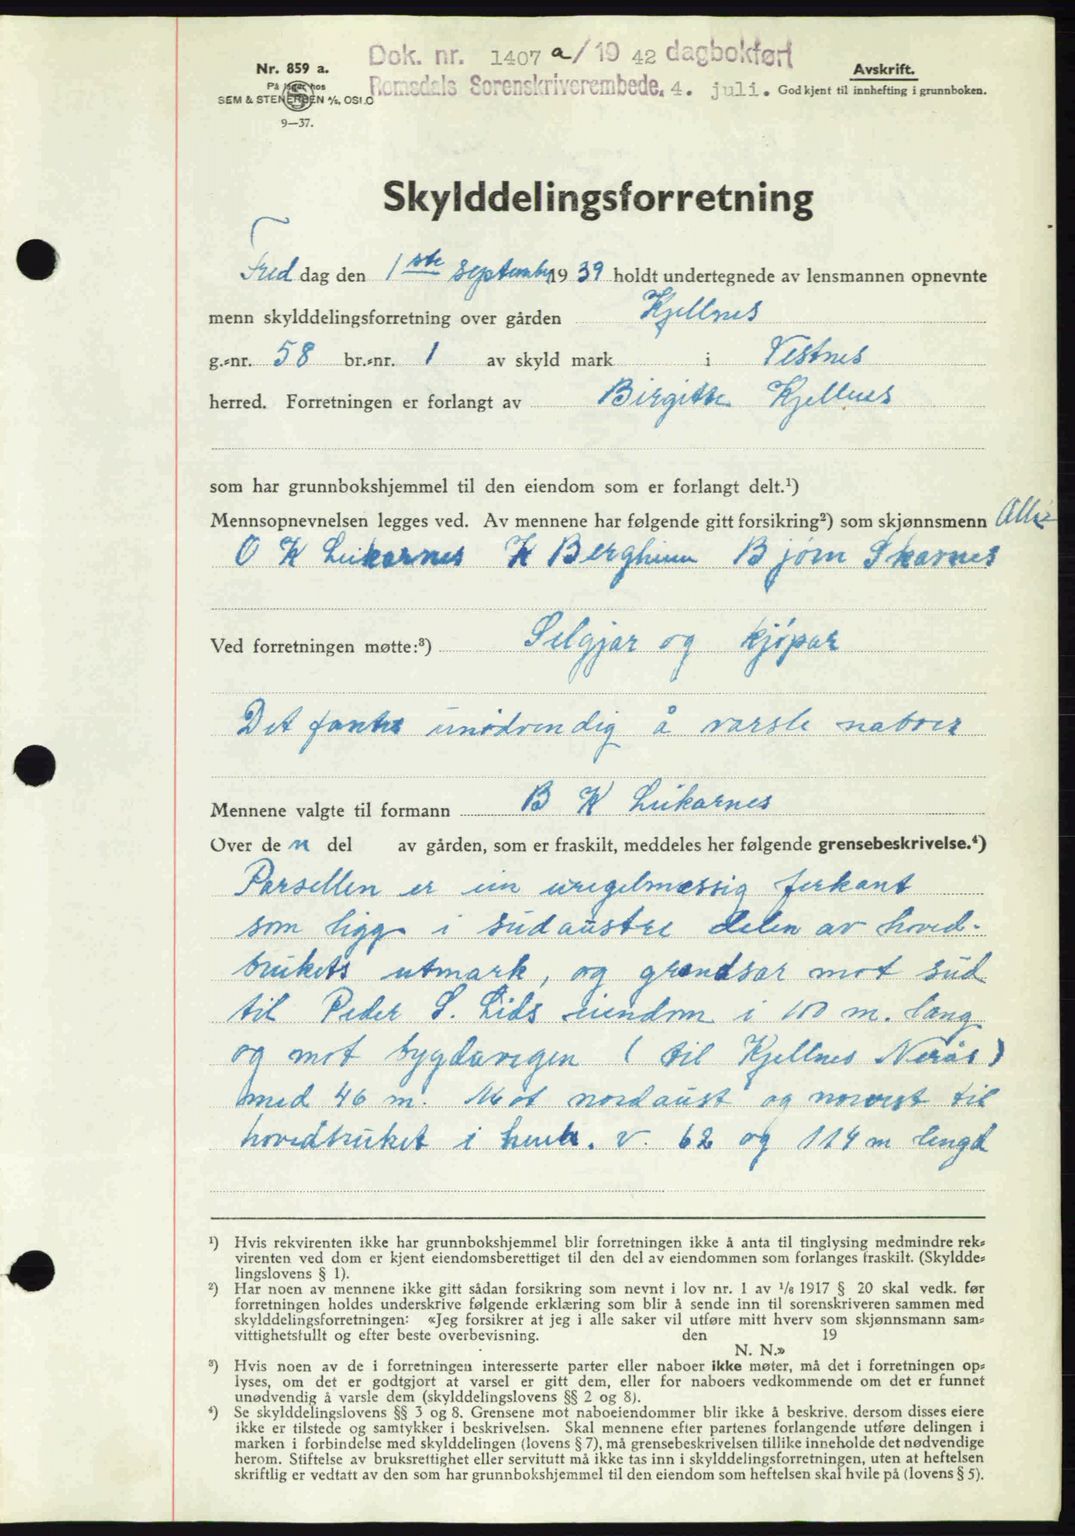 Dok. nr. 1407 a/19 42 dagbokført
Romsdals Sorenskriverembede. 4. juli.
Nr. 859 a.
På lager hos
SEM & STENERSEN A/S, OSLO
9—37.
Avskrift.
Godkjent til innhefting i grunnboken.
Skylddelingsforretning
Fred dag den 1ste september 19 39 holdt undertegnede av lensmannen opnevnte
menn skylddelingsforretning over gården Kjellnes
g.-nr. 58 br.-nr. 1 av skyld mark i Vestnes
herred. Forretningen er forlangt av Birgitte Kjellnes
som har grunnbokshjemmel til den eiendom som er forlangt delt.¹)
Mennsopnevnelsen legges ved. Av mennene har følgende gitt forsikring²) som skjønnsmenn Alle
O K Leikarnes K Bergheim Bjørn Skarnes
Ved forretningen møtte:³) Selgjar og kjøpar
Det fantes unødvendig å varsle naboer
Mennene valgte til formann B K Leikarnes
Over den del av gården, som er fraskilt, meddeles her følgende grensebeskrivelse.⁴)
Parsellen er ein uregelmessig firkant
som ligg i südaustre delen av hoved-
brukets utmark, og grendsar mot süd
til Peder S. Lids eiendom i 100 m. lang
og mot bygdavegen ( til Kjellnes Nerås )
med 46 m. Mot nordaust og norvest til
hovedbruket i henh. v. 62 og 114 m lengd
¹) Hvis rekvirenten ikke har grunnbokshjemmel blir forretningen ikke å anta til tinglysing medmindre rek-
virenten ved dom er kjent eiendomsberettiget til den del av eiendommen som forlanges fraskilt. (Skyldde-
lingslovens § 1).
²) Har noen av mennene ikke gitt sådan forsikring som nevnt i lov nr. 1 av 1/6 1917 § 20 skal vedk. før
forretningen holdes underskrive følgende erklæring som blir å sende inn til sorenskriveren sammen med
skylddelingsforretningen: «Jeg forsikrer at jeg i alle saker vil utføre mitt hverv som skjønnsmann sam-
vittighetsfullt og efter beste overbevisning. den 19
N. N.»
³) Hvis noen av de i forretningen interesserte parter eller naboer ikke møter, må det i forretningen op-
lyses, om det er godtgjort at varsel er gitt dem, eller for naboers vedkommende om det er funnet
unødvendig å varsle dem (skylddelingslovens §§ 2 og 8).
⁴) Se skylddelingslovens §§ 3 og 8. Grensene mot naboeiendommer blir ikke å beskrive, dersom disses eiere
ikke er tilstede og samtykker i beskrivelsen. Skal mennene efter partenes forlangende utføre delingen i
marken i forbindelse med skylddelingen (lovens § 7), må grensebeskrivelsen tillike inneholde det nødvendige
herom. Stiftelse av bruksrettighet eller servitutt må ikke tas inn i skylddelingsforretningen, uten at heftelsen
skriftlig er vedtatt av den som har grunnbokshjemmel til den eiendom som heftelsen skal hvile på (lovens § 5).